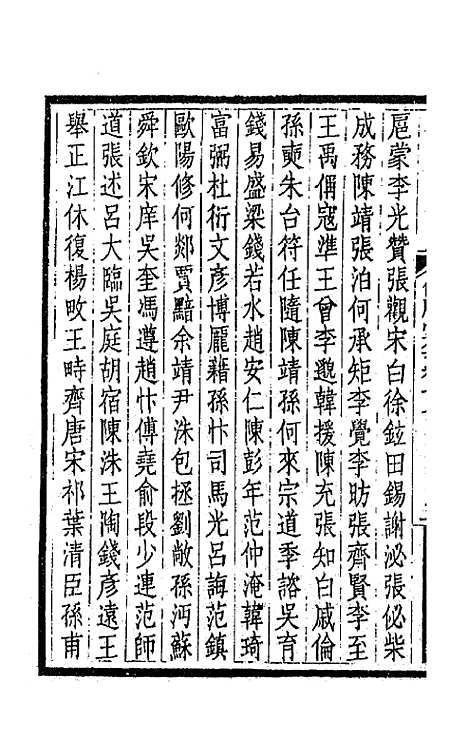 扈蒙李光贊張觀宋白徐鉉田錫謝泌張佖柴
成務陳靖張洎何承矩李覺李昉張齊賢李至
王禹偁寇準王曾李邈韓援陳充張知白戚倫
孫奭朱台符任隨陳靖孫何來宗道季諮吳育
錢易盛梁錢若水趙安仁陳彭年范仲淹韓琦
富弼杜衍文彥博龎藉孫忭司馬光呂誨范鎮
歐陽修何郯賈黯余靖尹洙包拯劉敞孫沔蘇
舜欽宋庠吳奎馮遵趙忭傅堯俞段少連范師
道張述呂大臨吳庭胡宿陳洙王陶錢彥遠王
舉正江休復楊畋王時齊唐宋祁葉清臣孫甫